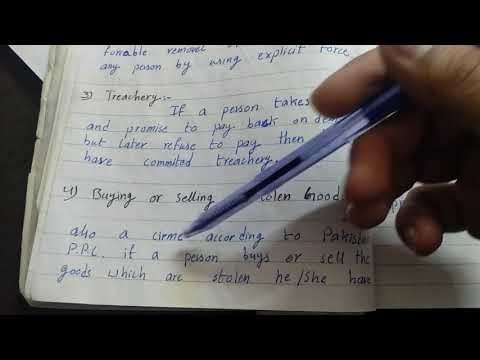 removal
any person by using explicit force
3) Treachery:-
If a person takes
and promise to pay back on
but later refuse to pay then
have commited treachery.
4) Buying or selling Good
also a cirme according to
P.P.C. if a person buys or sell the
goods which are stolen he/she have